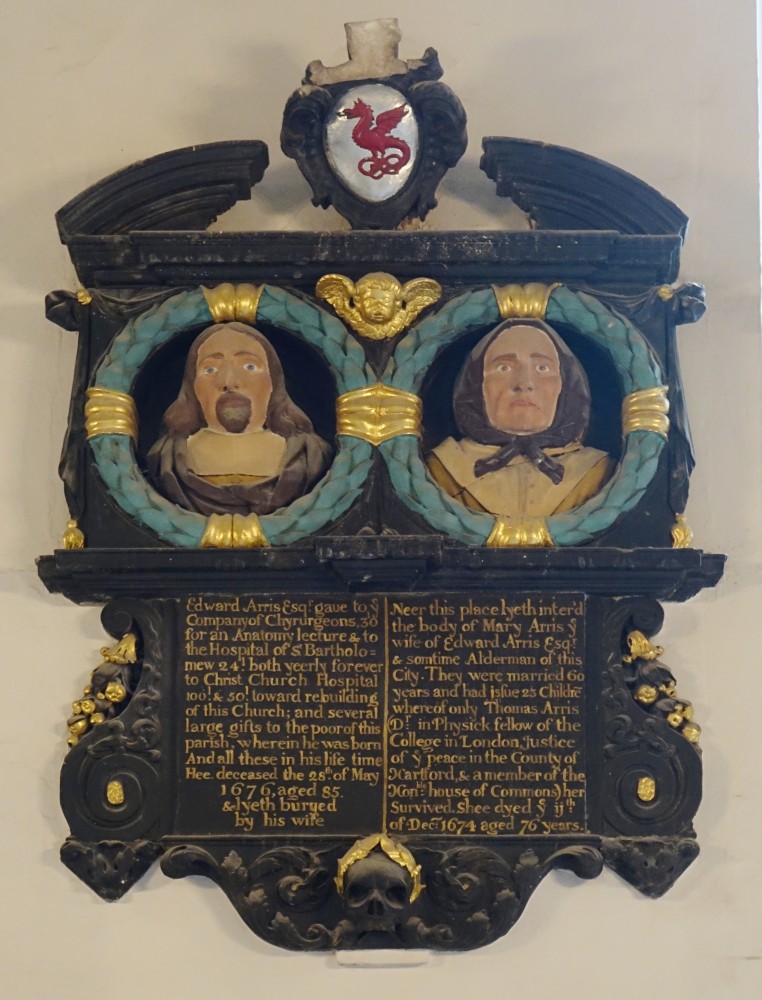 Edward Arris Esqr. gaue to ye
Company of Chyrurgeons, 30l
for an Anatomy lecture & to
the Hospital of St Bartholo=
mew 24l. both yeerly forever
to Christ Church Hospital
100l. & 50l. toward rebuilding
of this Church; and several
large gifts to the poor of this
parish. wherein he was born
And all these in his life time
Hee deceased the 28th. of May
1676, aged 85.
& lyeth buryed
by his wife
Neer this place lyeth inter'd
the body of Mary Arris ye
wife of Edward Arris Esqr.
& somtime Alderman of this
City. They were married 60
years and had issue 23 Childrē
whereof only Thomas Arris
Dr. in Physick fellow of the
College in London, justice
of ye peace in the County of
Hartford, & a member of the
Honble. house of Commons) her
Survived. Shee dyed ye ijth
of Decr. 1674 aged 76 years.